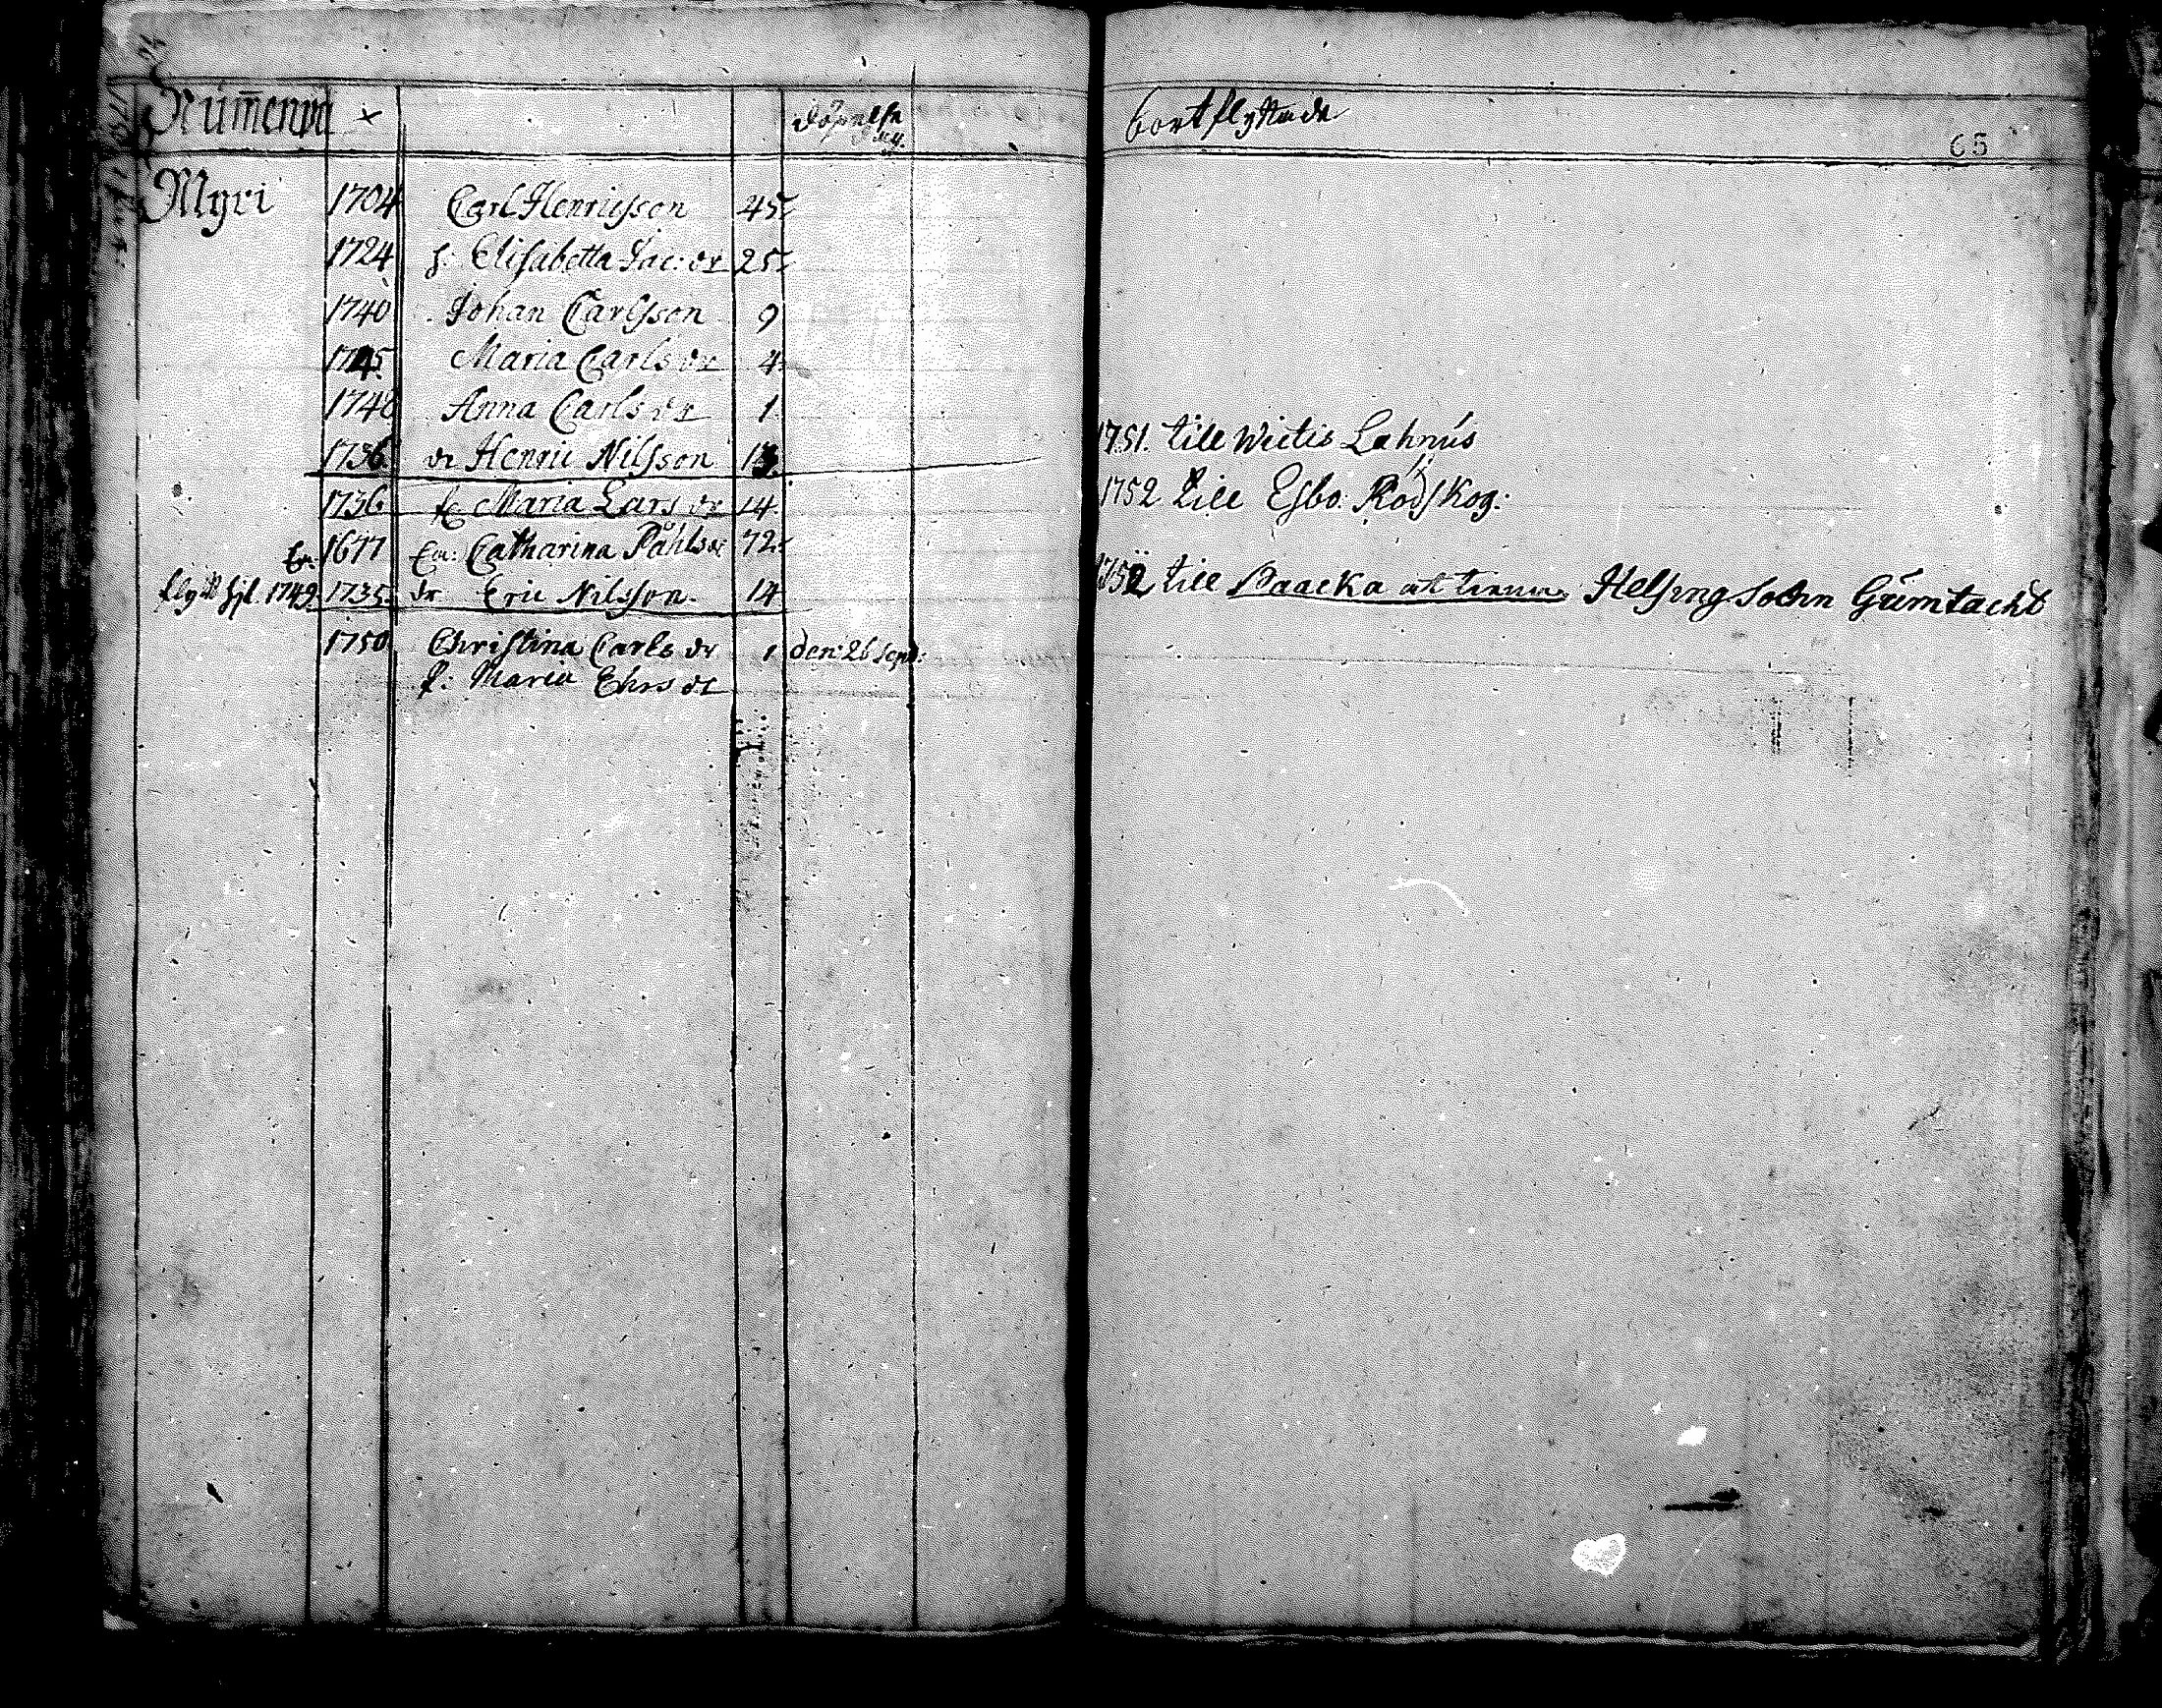 Num̄enpä × döpelse dag. bortflyttade
65
Myri 1704 Carl Henricsson 45
1724 h: Elisabetta Jac: dr 25
1740 Johan Carlsson 9
1745 Maria Carls dr 4
1748 Anna Carls dr 1
1736 dr Henric Nilsson 13 1751. till Wictis Lahnus
1736 Maria Lars dr 14 1752 till Esbo: Rödskog:
1677 Catharina Påhls dr 72
1749. 1735 dr Eric Nilsson 14 1752 till Baacka Helsing Sochn Gumtacht
1750 Christina Carls dr 1 den: 26 sept:
P: Maria Ehrs dr